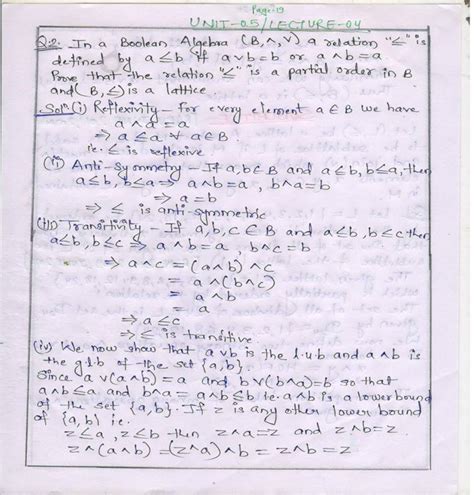 Page-19
UNIT-05/LECTURE-04
Q.2. In a Boolean Algebra (B,∧,∨) a relation "≤" is
defined by a≤b if a∨b=b or a∧b=a
Prove that the relation "≤" is a partial order in B
and (B,≤) is a lattice.
Solⁿ (i) Reflexivity – for every element a∈B we have
a∧a=a
⇒ a≤a ∀ a∈B
i.e. ≤ is reflexive
(ii) Anti-Symmetry – If a,b∈B and a≤b, b≤a, then
a≤b, b≤a ⇒ a∧b=a, b∧a=b
⇒ a=b
⇒ ≤ is anti-symmetric
(iii) Transitivity – If a,b,c∈B and a≤b, b≤c then
a≤b, b≤c ⇒ a∧b=a, b∧c=b
⇒ a∧c = (a∧b)∧c
= a∧(b∧c)
= a∧b
= a
⇒ a≤c
⇒ ≤ is transitive
(iv) We now show that a∨b is the l.u.b and a∧b is
the g.l.b of the set {a,b}.
Since a∨(a∧b)=a and b∨(b∧a)=b so that
a∧b≤a and b∧a=a∧b≤b i.e. a∧b is a lower bound
of the set {a,b}. If z is any other lower bound
of {a,b} i.e.
z≤a, z≤b then z∧a=z and z∧b=z.
z∧(a∧b)=(z∧a)∧b=z∧b=z